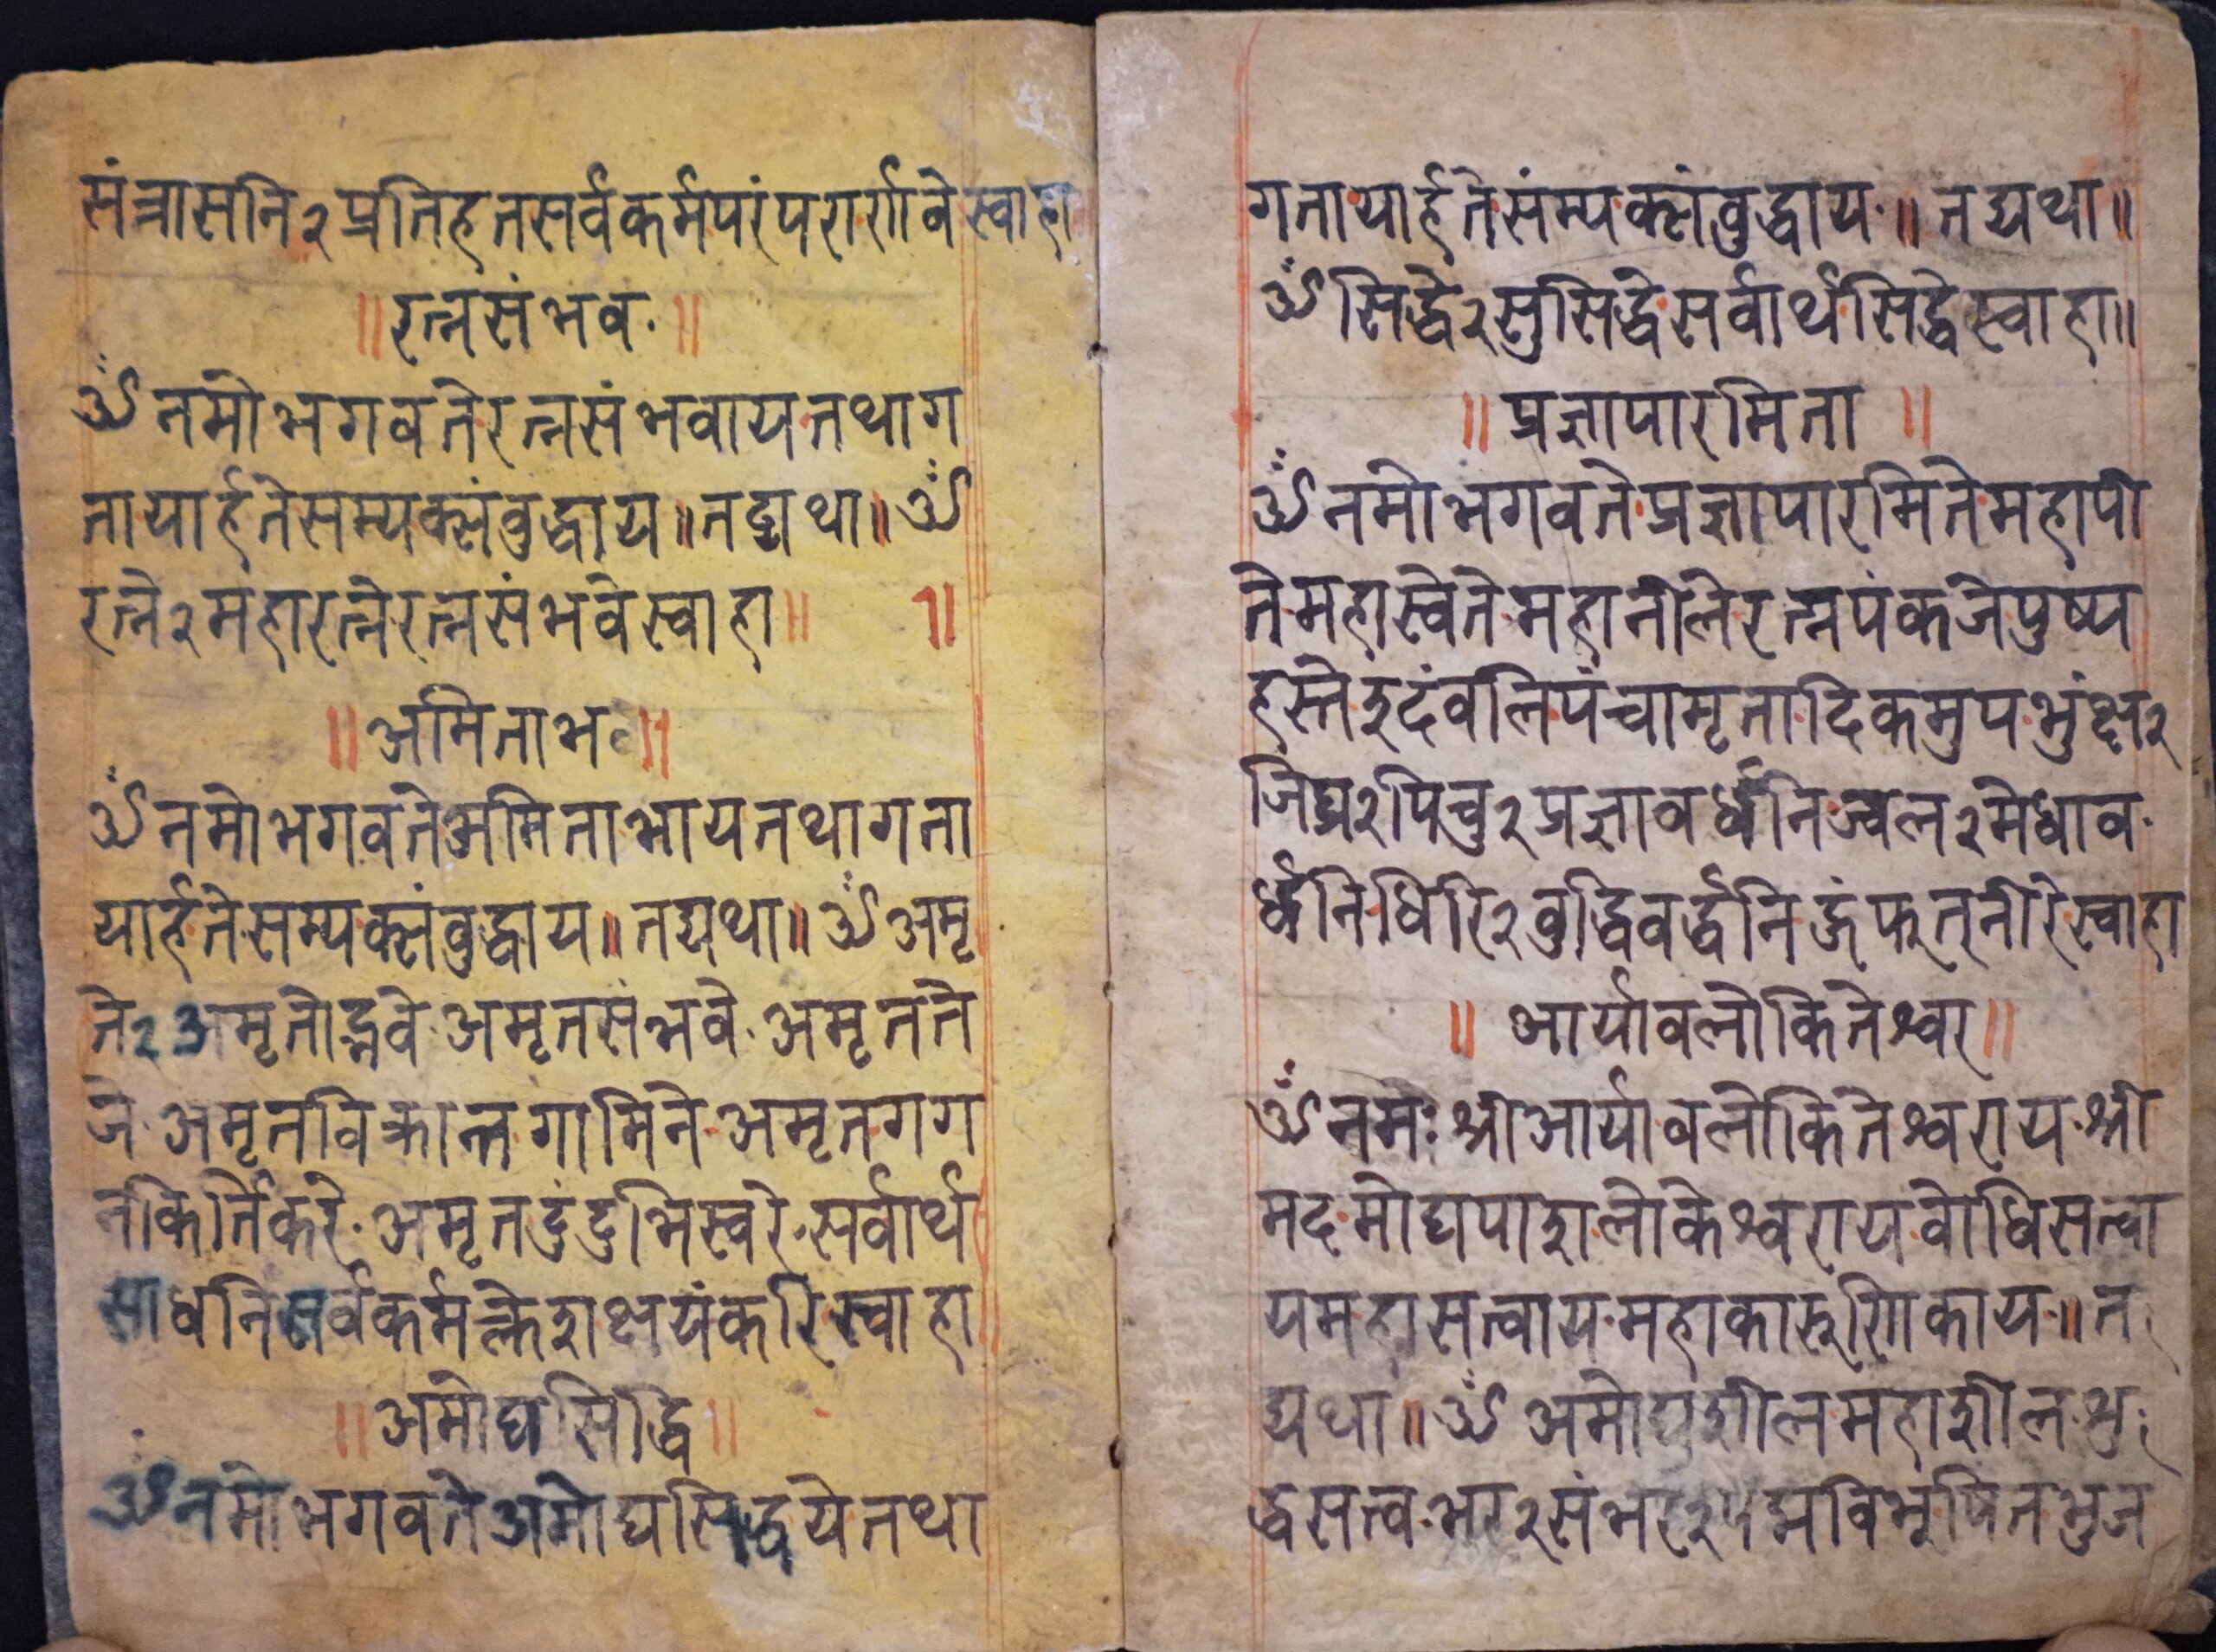 संत्रासनि२प्रतिहतसर्वकर्मपरंपरार्णवेस्वाहा
॥रत्नसंभव॥
ॐनमोभगवतेरत्नसंभवायतथाग
तायार्हतेसम्यक्संबुद्धाय॥तद्यथा॥ॐ
रत्ने२महारत्नेरत्नसंभवेस्वाहा॥ ॥
॥अमिताभ॥
ॐनमोभगवतेअमिताभायतथागता
यार्हतेसम्यक्संबुद्धाय॥तद्यथा॥ॐअमृ
ते२अमृतोद्भवेअमृतसंभवेअमृतते
जेअमृतविक्रान्तगामिनेअमृतगग
नकिर्तिकरेअमृतदुंदुभिस्वरेसर्वार्थ
साधनिसर्वकर्मक्लेशक्षयंकरिस्वाहा
॥अमोघसिद्धि॥
ॐनमोभगवतेअमोघसिद्धयेतथा
गतायार्हतेसंम्यक्संवुद्धाय॥तद्यथा॥
ॐसिद्धे२सुसिद्धेसर्वार्थसिद्धेस्वाहा॥
॥प्रज्ञापारमिता॥
ॐनमोभगवतेप्रज्ञापारमितेमहापी
तेमहास्वेतेमहानीलेरत्नपंकजेपुष्प
हस्तेइदंवलिपंचामृतादिकमुपभुंक्ष२
जिघ्र२पिचु२प्रज्ञावर्धनिज्वल२मेधाव
र्धनिधिरि२वुद्धिवर्द्धनिहूंफट्तारेस्वाहा
॥आर्यावलोकितेश्वर॥
ॐनमःश्रीआर्यावलोकितेश्वरायश्री
मदमोघपाशलोकेश्वरायवोधिसत्वा
यमहासत्वायमहाकारुणिकाय॥त
द्यथा॥ॐअमोघशीलमहाशीलशु
द्धसत्त्वभर२संभर२पद्मविभूषितभुज